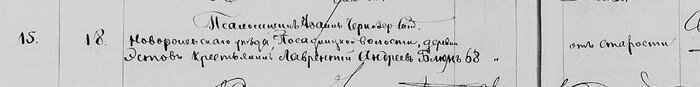 15. 18. Псаломщикъ Иоаннъ
Новоржевскаго уѣзда, Посадницкой волости, деревни
Эстовъ крестьянинъ Лаврентій Андреевъ Блюмъ 68 „ отъ старости